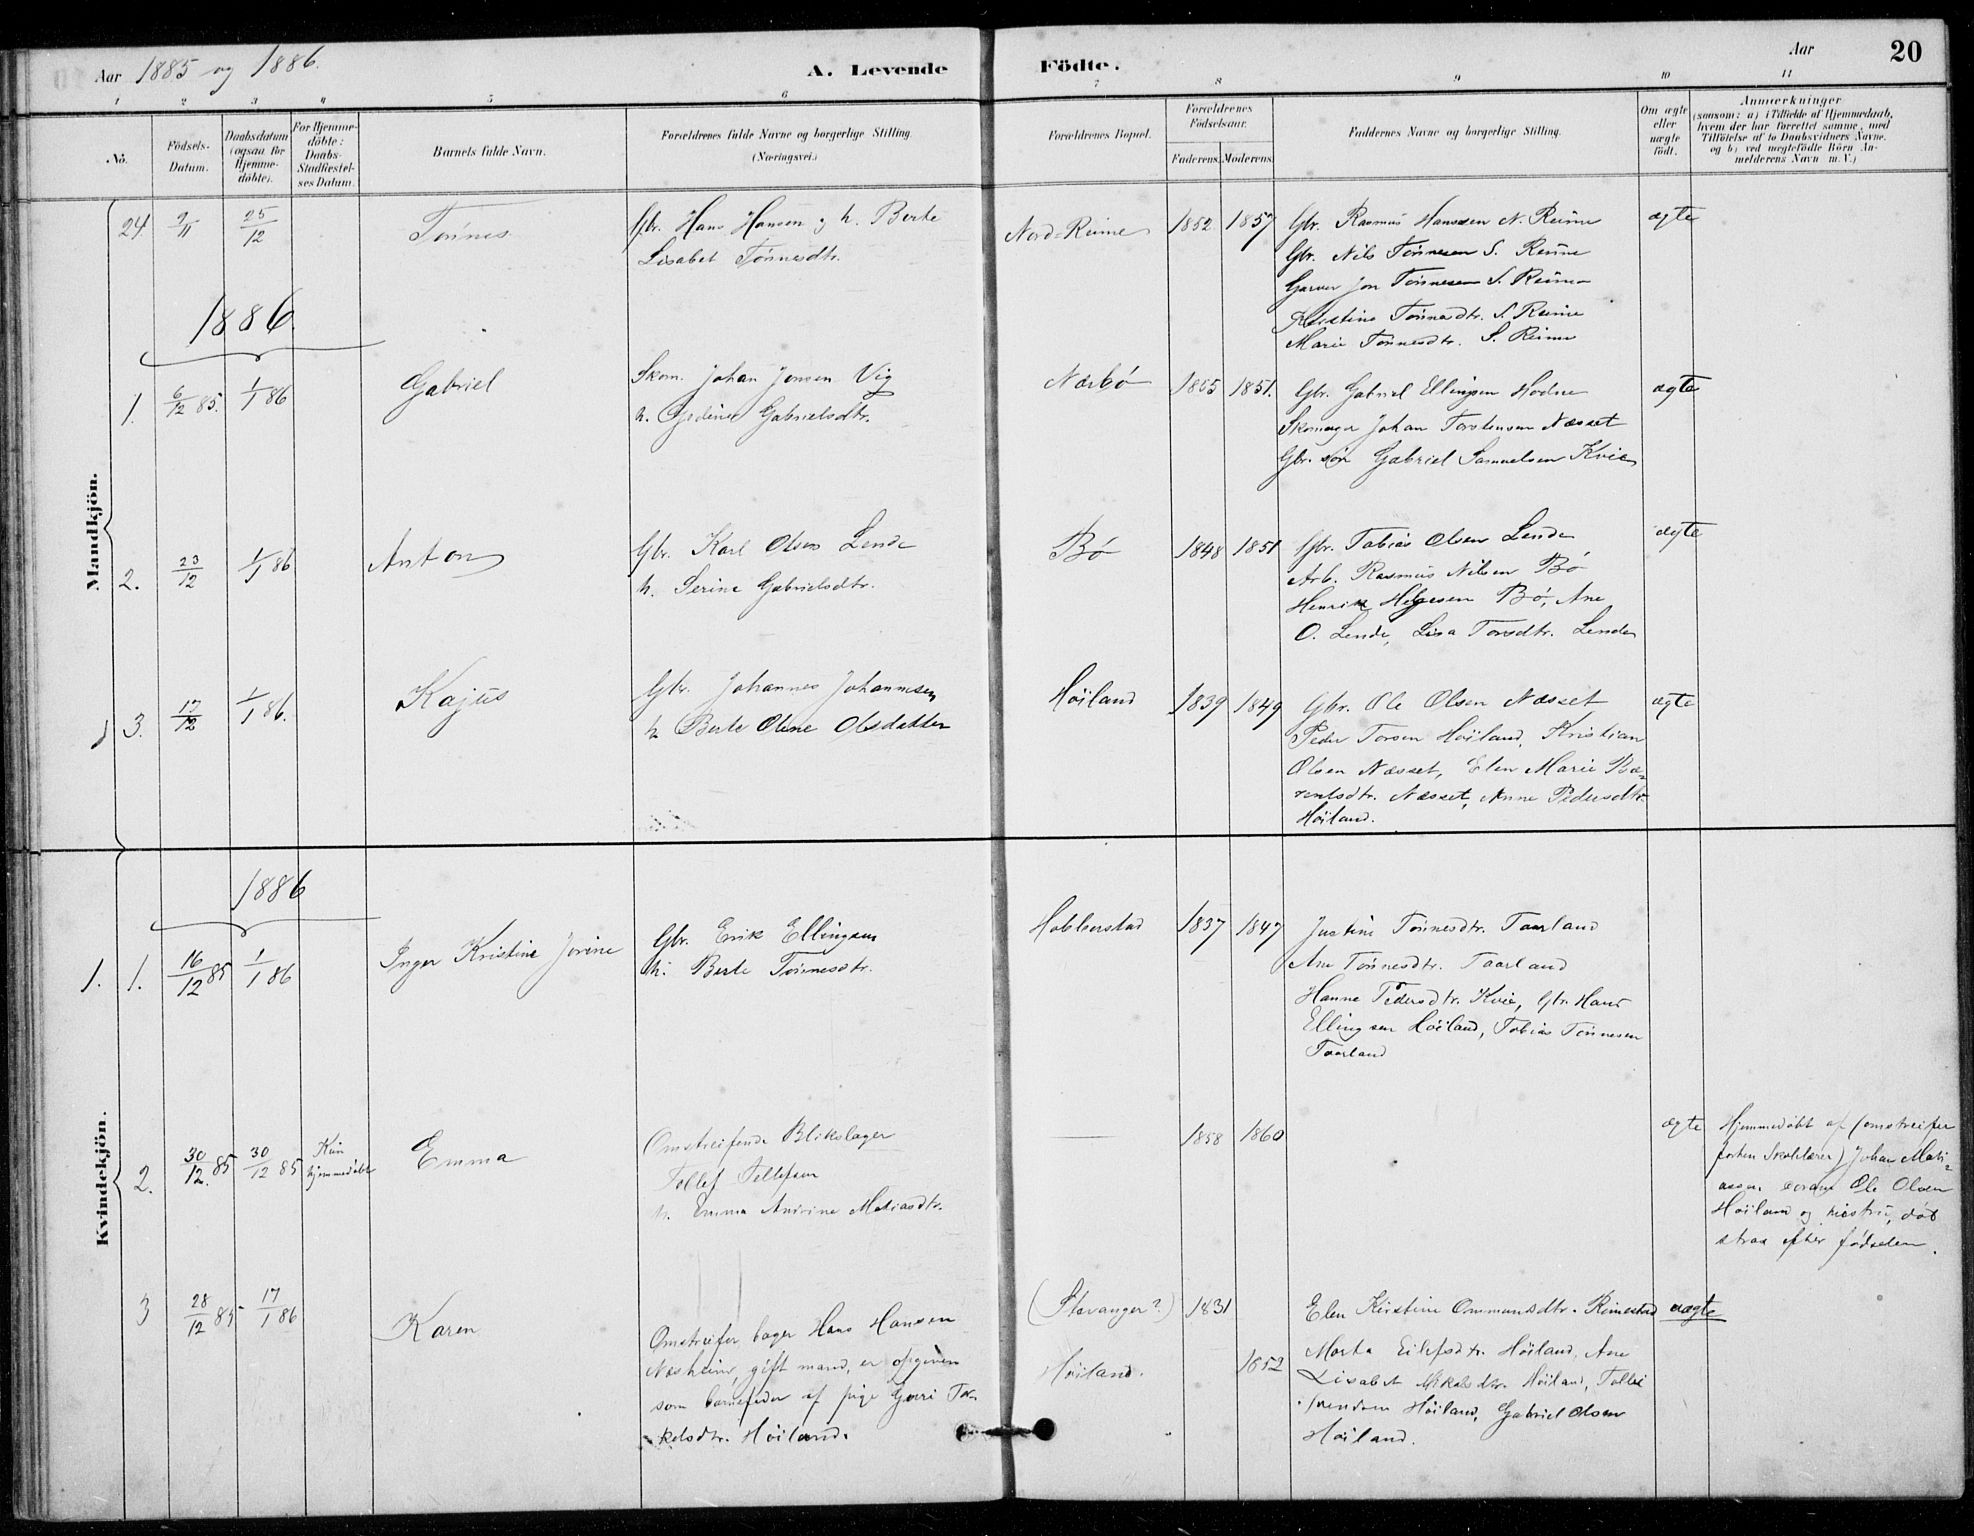 Aar 1885 og 1886.
A. Levende Födte.
Aar
20
1 2 3 4 5 6 7 8 9 10 11
No.
Födsels-
Datum.
Daabsdatum
(ogsaa for
Hjemme-
döbte).
For Hjemme-
döbte:
Daabs-
Stadfæstel-
ses Datum.
Barnets fulde Navn.
Forældrenes fulde Navne og borgerlige Stilling.
(Næringsvei.)
Forældrenes Bopæl.
Forældrenes
Födselsaar.
Faderens.
Moderens.
Faddernes Navne og borgerlige Stilling.
Om ægte
eller
uægte
födt.
Anmærkninger
(saasom: a) i Tilfælde af Hjemmedaab,
hvem der har forrettet samme, med
Tilföielse af to Daabsvidners Navne,
og b) ved uægtefödte Börn An-
melderens Navn m. V.)
Mandkjön.
24 9/11 25/12 Tønnes
Gbr. Hans Hansen og h. Berte
Lisabet Tønnesdtr.
Nord-Reime 1852 1857
Gbr. Rasmus Hanssen N. Reime
Gbr. Nils Tønnesen S. Reime
Garver Jon Tønnesen S. Reime
Kristine Tønnesdtr. S. Reime
Marie Tønnesdtr. S. Reime
ægte
1886.
1. 6/12 85. 1/1 86 Gabriel
Skom. Johan Jonsen Vig
h. Gudine Gabrielsdtr.
Nærbø 1855 1851.
Gbr. Gabriel Ellingsen Hodne
Skomager Johan Torstensen Næsset
Gbr. søn Gabriel Samuelsen Kvie
ægte
2. 23/12 1/1 86 Anton
Gbr. Karl Olsen Lende
h. Serine Gabrielsdtr.
Bø 1848 1851
Gbr. Tobias Olsen Lende
Arb. Rasmus Nilsen Bø
Henrik Helgesen Bø, Ane
O. Lende, Lisa Torsdtr. Lende
ægte
3. 17/12 1/1 86. Kajus
Gbr. Johannes Johannesen
h Berte Oline Olsdatter
Høiland 1839 1849
Gbr. Ole Olsen Næsset
Peder Torsen Høiland, Kristian
Olsen Næsset, Elen Marie Bæ-
rentsdtr. Næsset, Anne Pedersdtr.
Høiland.
ægte
Kvindekjön.
1886
1. 1. 16/12 85 1/1 86 Inger Kristine Jorine
Gbr. Erik Ellingsen
h. Berte Tønnesdtr.
Hobberstad 1837 1847
Justine Tønnesdtr. Taarland
Ane Tønnesdtr. Taarland
Hanne Pedersdtr. Kvie, Gbr. Hans
Ellingsen Høiland, Tobias Tønnesen
Taarland
2. 30/12. 85 30/12 85 Kun
hjemmedøbt
Emma
Omstreifende Blikslager
Tollef Tollefsen
h. Emma Andrine Matiasdtr.
— 1858 1860
ægte
Hjemmedøbt af (omstreifer
forhen Skolelærer) Johan Mati-
assen coram Ole Olsen
Høiland og hustru, død
strax efter fødselen.
3 28/12 85 17/1 86 Karen
Omstreifer bager Hans Hansen
Næsheim, gift mand, er opgiven
som barnefader af pige Guri Tor-
kelsdtr. Høiland.
(Stavanger?) 1831
Høiland. 1852
Elen Kirstine Ommundsdtr. Reimestad
Marta Eilefsdtr. Høiland, Ane
Lisabet Mikalsdtr. Høiland, Tollei
Høiland, Gabriel Olsen
Høiland.
uægte